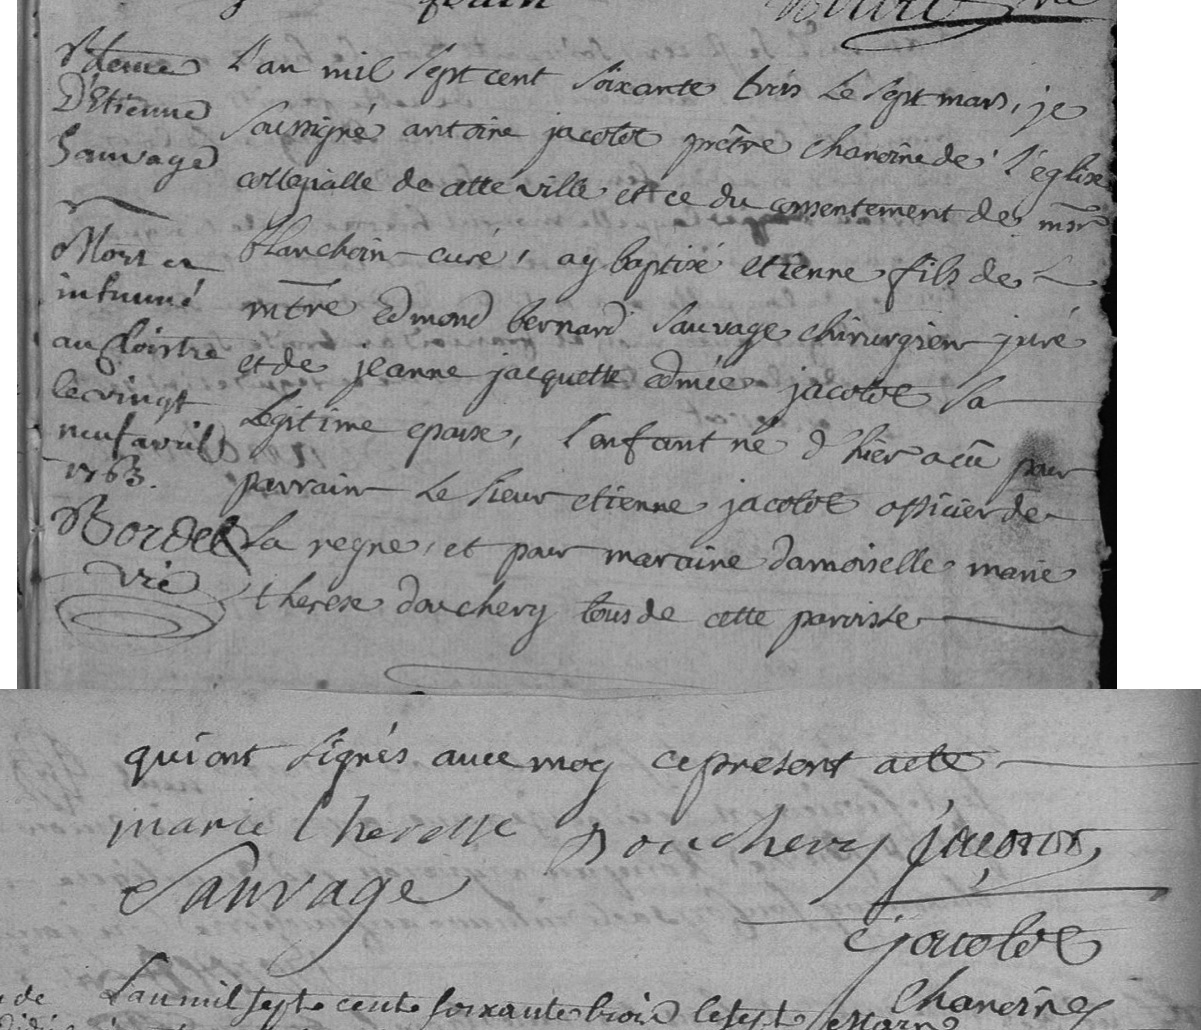 Bteme
D'Etienne
Sauvage
Mort et
inhumé
au Cloistre
le vingt
neuf avril
1763.
Bordel
vic
L'an mil sept cent soixante trois le sept mars, je
soussigné antoine jacotot prêtre chanoine de l'église
collegialle de cette ville et ce du consentement de msr
blanchoin curé, ay baptisé etienne fils de
mtre Edmond bernard Sauvage chirurgien juré
et de jeanne jacquette edmée jacotot sa
Legitime epouse, l'enfant né d'hier a eû pour
parrain le sieur etienne jacotot officier de
La regne, et pour maraine damoiselle marie
therese douchery tous de cette paroisse
qui ont signés avec moy ce present acte
marie Theresse Douchery jacotot
Sauvage
jacotot
Chanoine
L'an mil sept cent soixante trois le sept mars